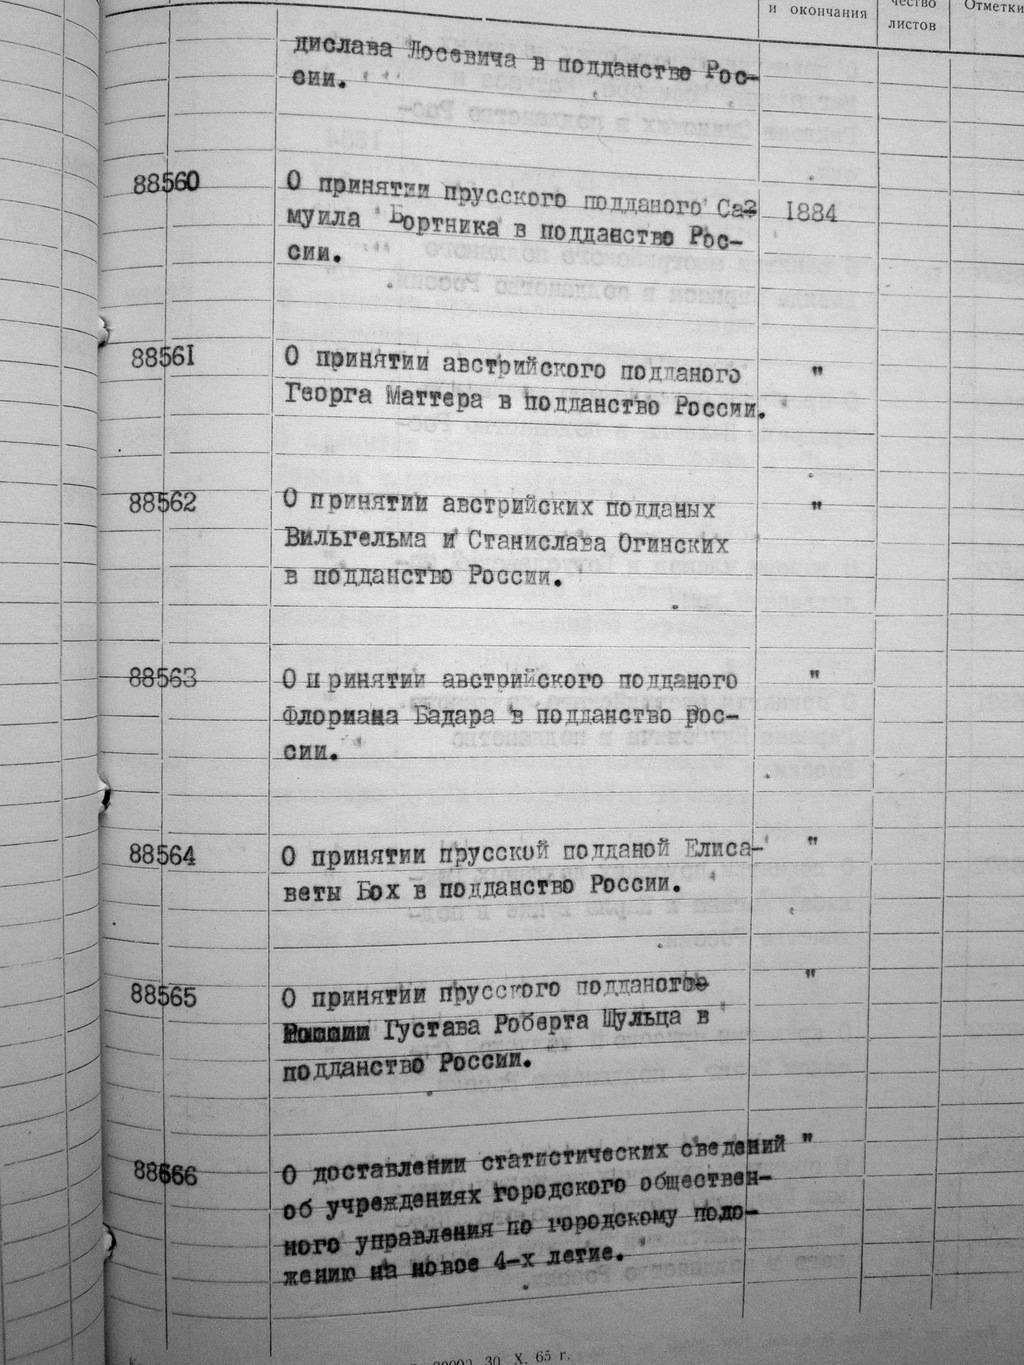 и окончания
чество
листов
Отметки
дислава Лосевича в подданство Рос-
сии.
88560 О принятии прусского подданого Са-
муила Бортника в подданство Рос-
сии.
1884
88561 О принятии австрийского подданого "
Георга Маттера в подданство России.
88562 О принятии австрийских подданых "
Вильгельма и Станислава Огинских
в подданство России.
88563 О принятии австрийского подданого "
Флориана Бадара в подданство рос-
сии.
88564 О принятии прусской подданой Елиса- "
веты Бох в подданство России.
88565 О принятии прусского подданого "
Густава Роберта Шульца в
подданство России.
88666 О доставлении статистических сведений "
об учреждениях городского обществен-
ного управления по городскому поло-
жению на новое 4-х летие.
30. X. 65 г.